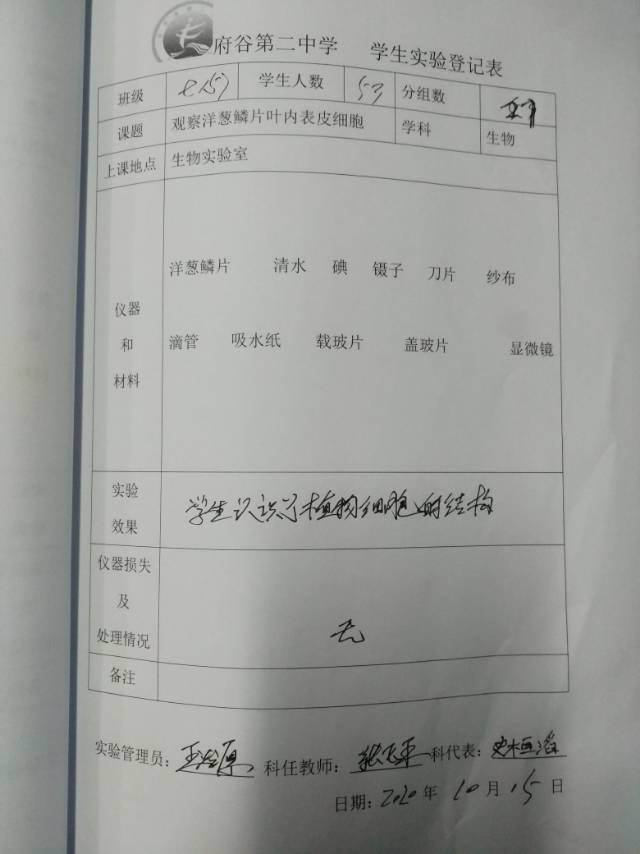 府谷第二中学 学生实验登记表
班级 七(5) 学生人数 53 分组数
课题 观察洋葱鳞片叶内表皮细胞 学科 生物
上课地点 生物实验室
洋葱鳞片 清水 碘 镊子 刀片 纱布
仪器
和
材料
滴管 吸水纸 载玻片 盖玻片 显微镜
实验
效果
学生认识了植物细胞的结构
仪器损失
及
处理情况
无
备注
实验管理员: 科任教师: 科代表:
日期: 2020 年 10 月 15 日